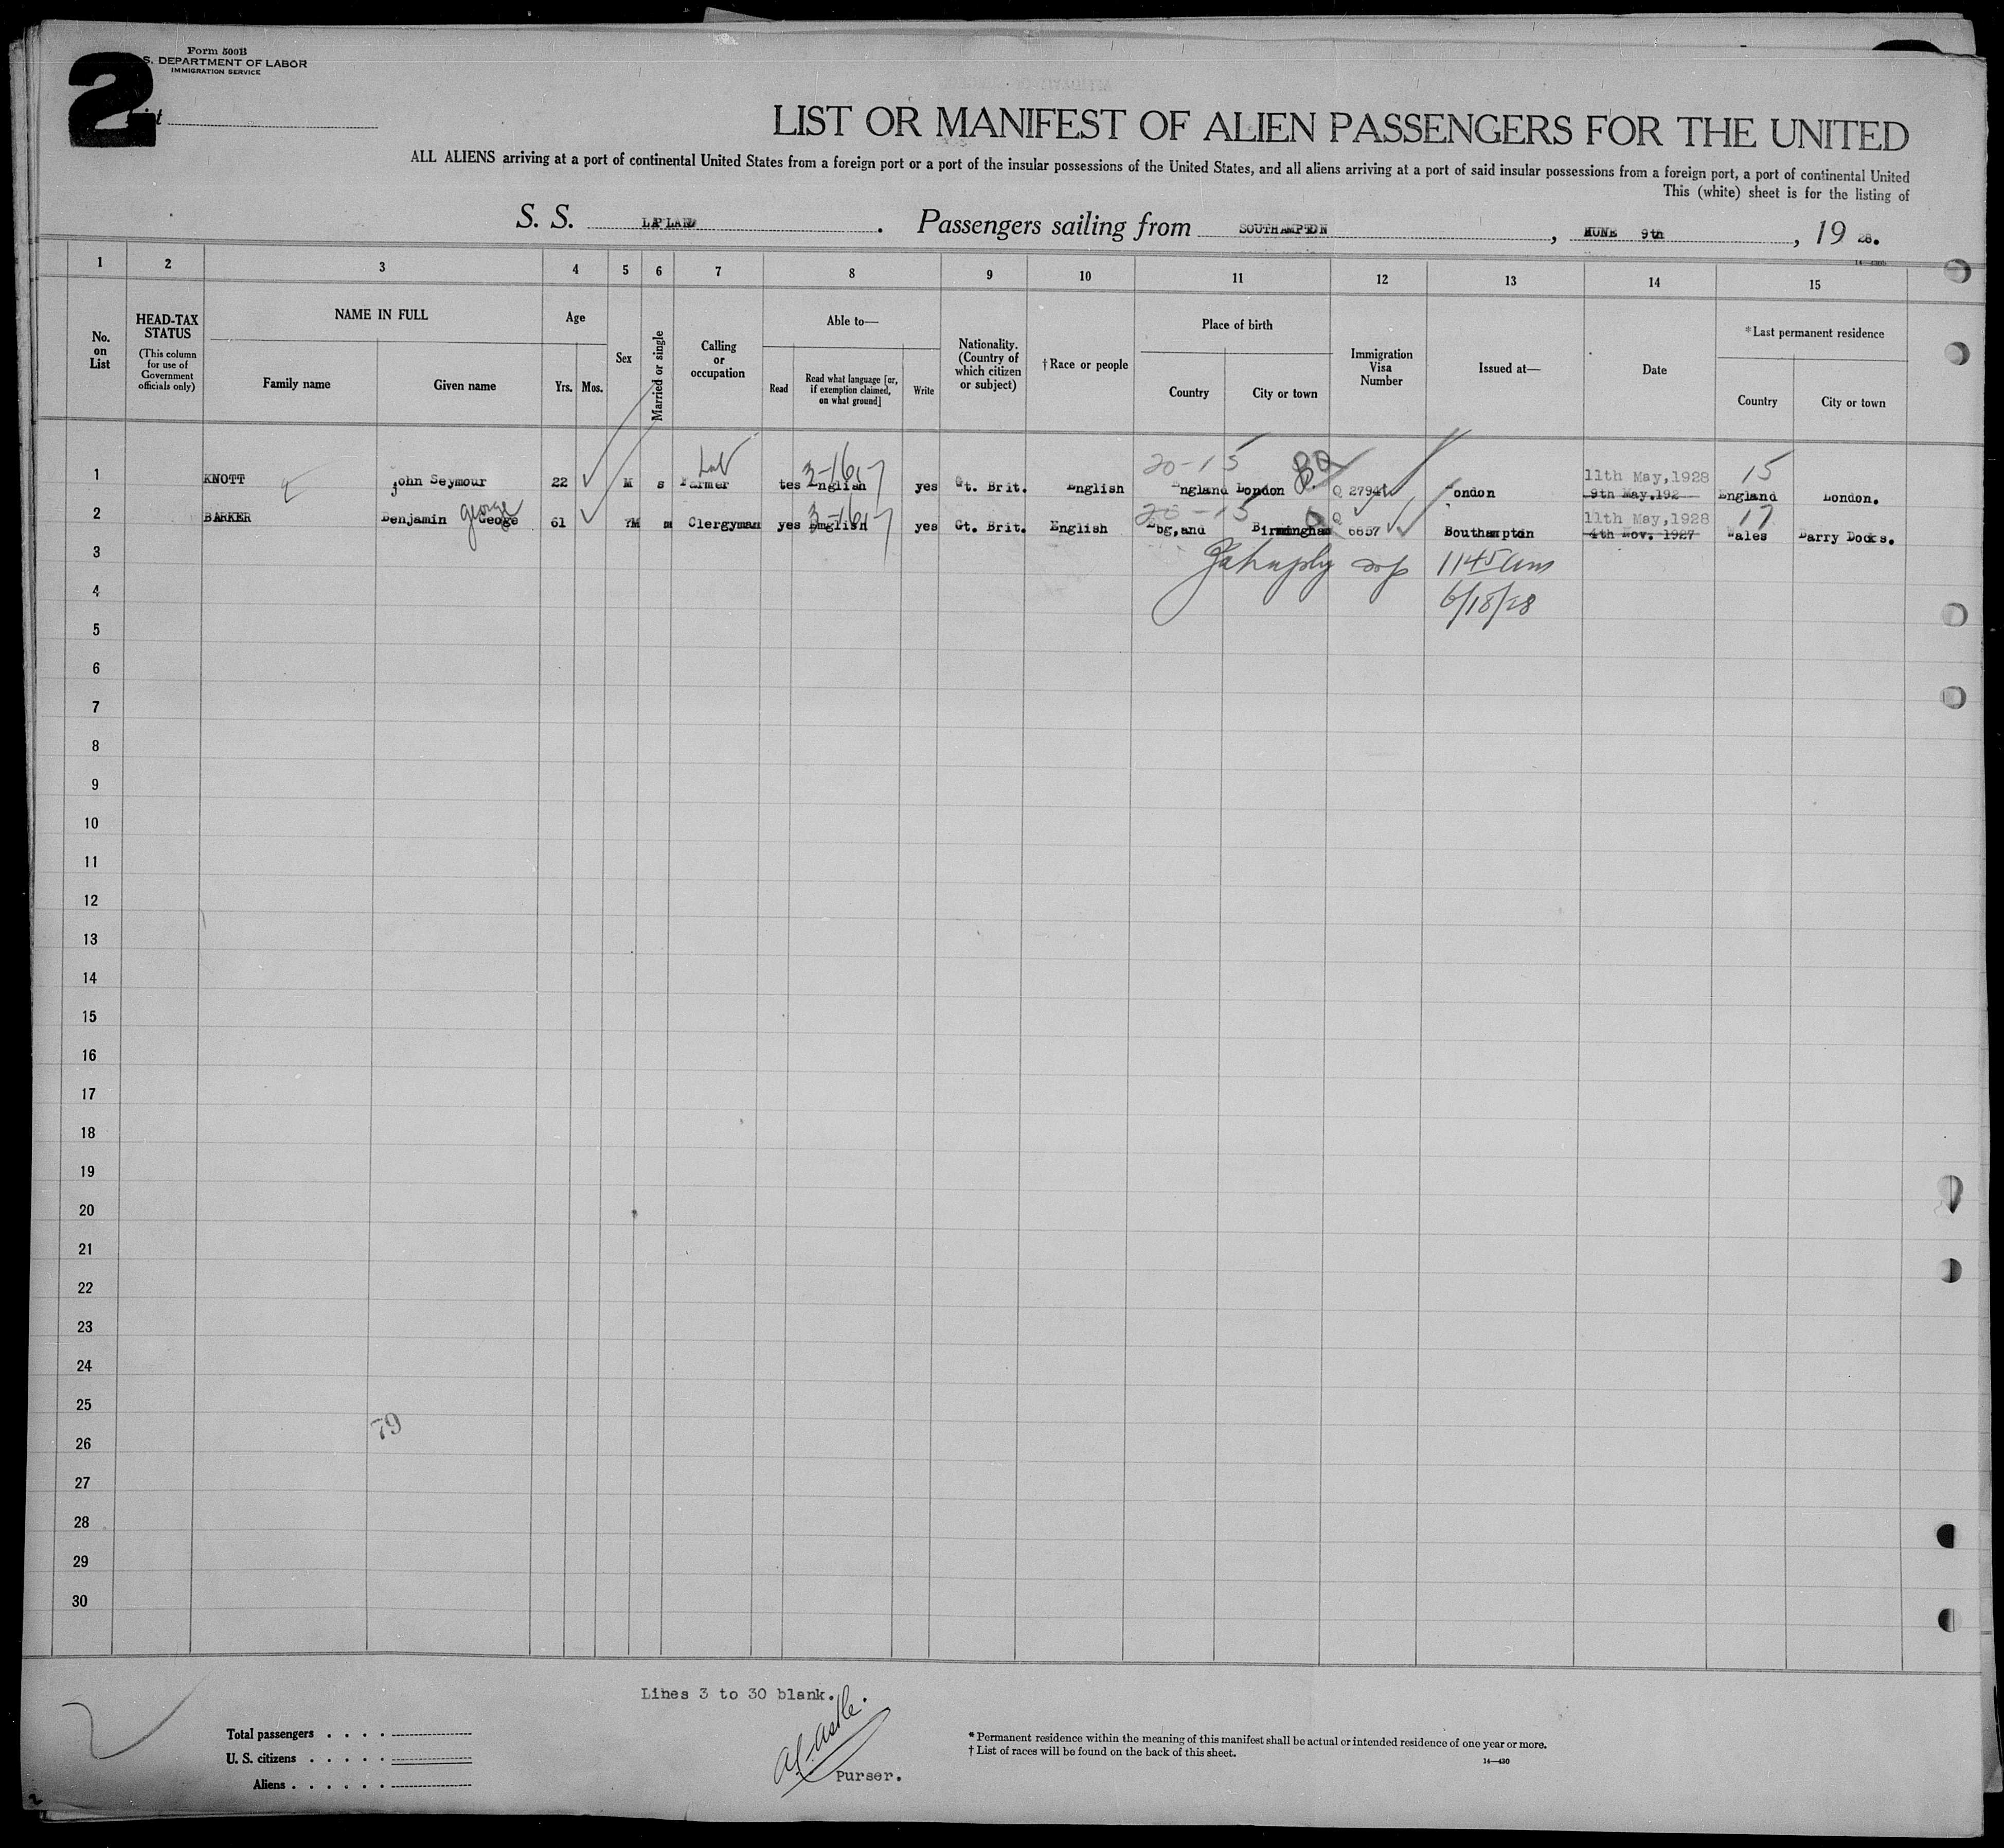 2
Form 500B
S. DEPARTMENT OF LABOR
IMMIGRATION SERVICE
LIST OR MANIFEST OF ALIEN PASSENGERS FOR THE UNITED
ALL ALIENS arriving at a port of continental United States from a foreign port or a port of the insular possessions of the United States, and all aliens arriving at a port of said insular possessions from a foreign port, a port of continental United
This (white) sheet is for the listing of
S. S. LAPLAND. Passengers sailing from SOUTHAMPTON, HUNE 9th, 19 28.
1 2 3 4 5 6 7 8 9 10 11 12 13 14 15
No. on List
HEAD-TAX STATUS
(This column for use of Government officials only)
NAME IN FULL
Family name Given name
Age
Yrs. Mos.
Sex
Married or single
Calling or occupation
Able to—
Read
Read what language [or, if exemption claimed, on what ground]
Write
Nationality. (Country of which citizen or subject)
†Race or people
Place of birth
Country City or town
Immigration Visa Number
Issued at—
Date
*Last permanent residence
Country City or town
20-15 11th May,1928 15
1 KNOTT john Seymour 22 M s Farmer tes English 3-16 yes Gt. Brit. English England London Q 2794 London 9th May.192 England London.
george 20-15 11th May,1928 17
2 BARKER Benjamin Geoge 61 M m Clergyman yes English 3-16 yes Gt. Brit. English Eng,and Birmingham Q 6657 Southampton 4th Nov. 1927 Wales Barry Docks.
3 1145 am
4 6/18/28
5
6
7
8
9
10
11
12
13
14
15
16
17
18
19
20
21
22
23
24
25
79
26
27
28
29
30
Lines 3 to 30 blank.
Purser.
Total passengers
U. S. citizens
Aliens
* Permanent residence within the meaning of this manifest shall be actual or intended residence of one year or more.
† List of races will be found on the back of this sheet.
14—430